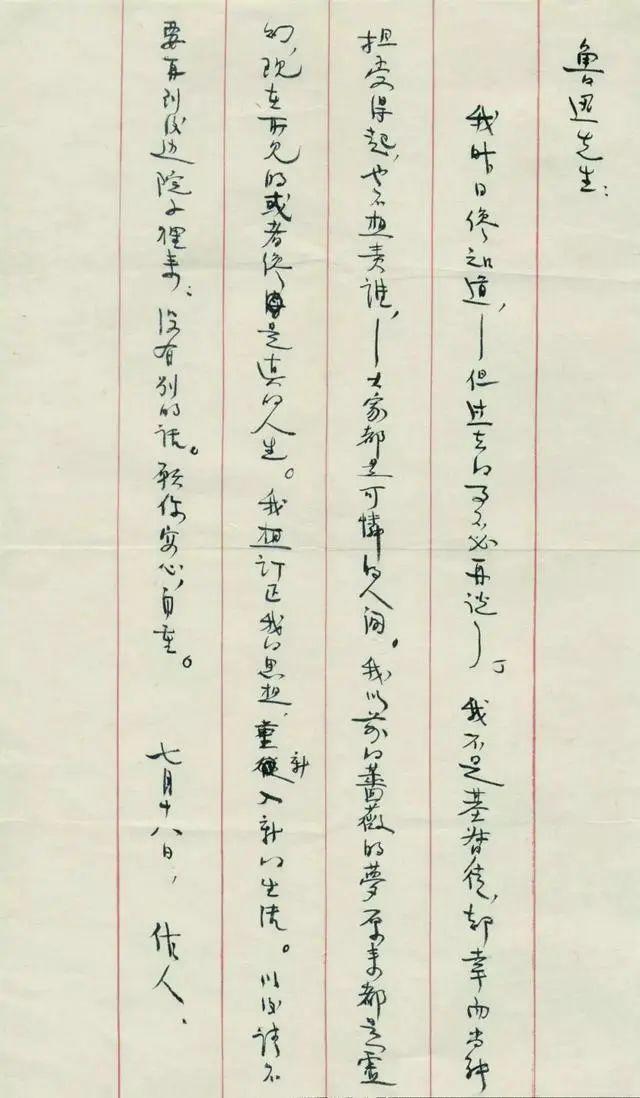 魯迅先生：
我昨日纔知道，——但過去的事不必再說了。我不是基督徒，却幸而尚能
担受得起，也不想責誰，——大家都是可憐的人間。我以前的薔薇的夢原来都是虚
幻，現在所見的或者纔是真的人生。我想訂正我的思想，重新入新的生活。以後請不
要再到後边院子裡来，没有别的話。願你安心，自重。
七月十八日，作人．